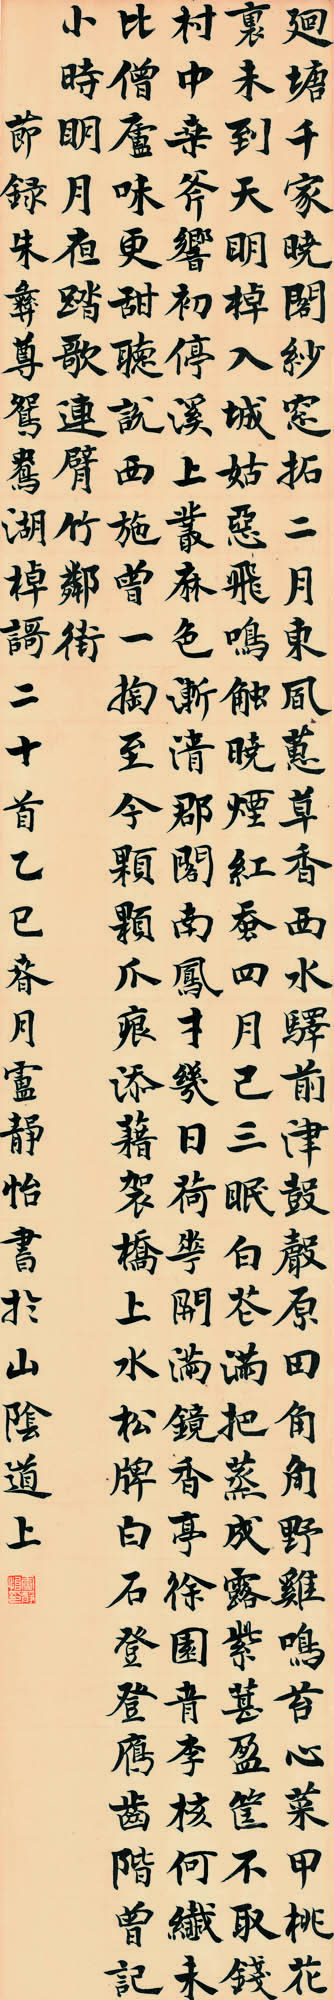 廻塘千家曉閣紗窓拓二月東風蕙草香西水驛前津鼓聲原田角角野雞鳴苔心菜甲桃花
裏未到天明棹入城姑惡飛鳴触曉煙紅蚕四月已三眠白花滿把蒸成露紫葚盈筐不取錢
村中桑斧響初停溪上叢麻色漸清郡閣南鳳才幾日荷華開滿鏡香亭徐園青李核何纖未
比僧廬味更甜聽說西施曾一掏至今顆顆爪痕添藉袈橋上水松牌白石登登鴈齒階曾記
小時明月夜踏歌連臂竹鄰街
節錄朱彝尊鴛鴦湖棹謌二十首乙巳春月盧靜怡書於山陰道上